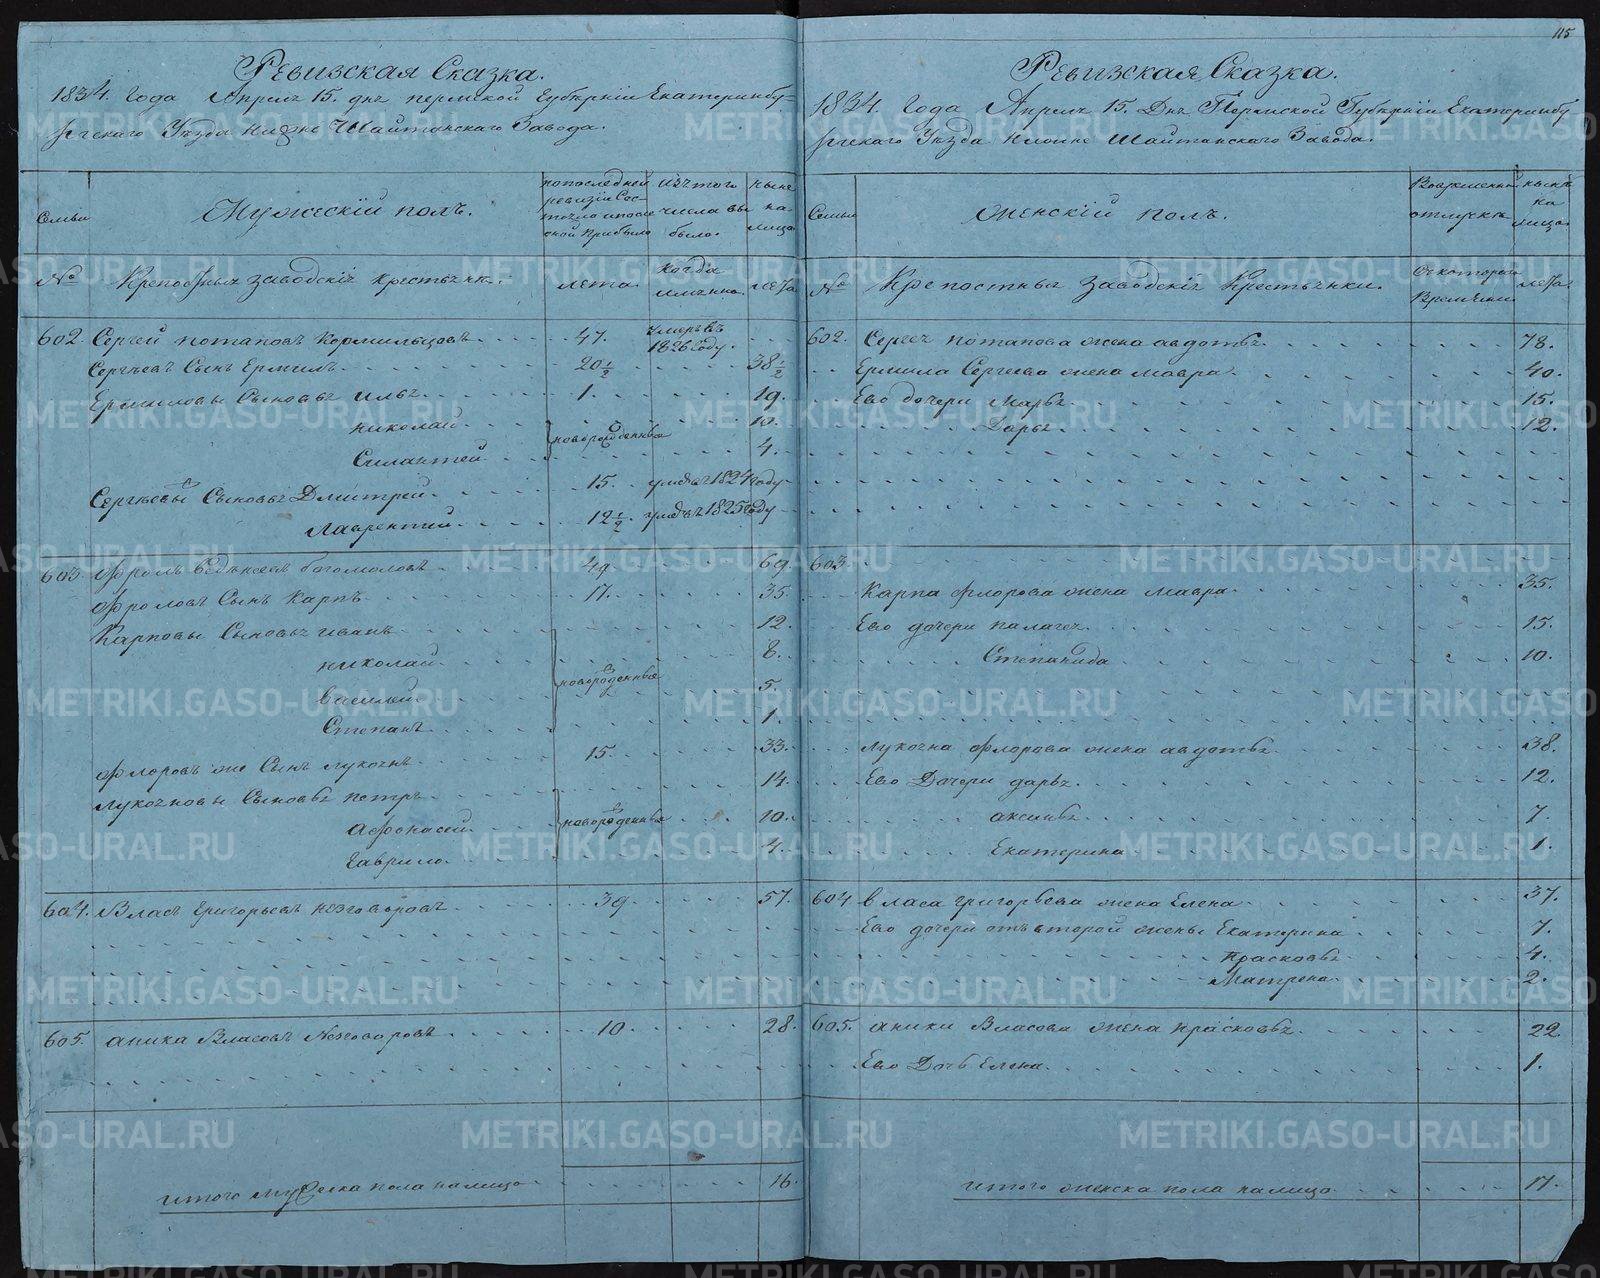 115
Ревизская Сказка.
1834. Года Апреля 15. дня пермской Губерніи Екатеринбу-
ргскаго Уѣзда Нижне Шайтанскаго Завода.
Семьи
Мужескій полъ.
попоследней ревизіи Состояло ипосле оной Прибыло
Изъ того числа выбыло.
ныне налицо
№
Крепостныя заводскія крестьяня.
лета.
когда имянно.
лета
602. Сергей потаповъ Кормильцовъ 47. умеръ въ 1826 Году.
Сергѣевъ Сынъ Ермилъ 20 1/2 38 1/2
Ермиловы Сыновья илья 1. 19.
николай новорожденныя 10.
Силантей 4.
Сергѣевы Сыновья Дмитрей 15. умеръ 1824 году
лаврентий 12 1/2. умеръ 1825 Году
603. Фролъ богомоловъ 49. 69.
Фроловъ Сынъ Карпъ 17. 35.
Карповы Сыновья иванъ 12.
николай новорожденныя 8.
василий 5.
Степанъ 1.
Флоровъ же Сынъ лукоянъ 15. 33.
лукояновы Сыновья петръ 14.
афонасей новорожденныя 10.
Гаврило. 4.
604. Власъ Григорьевъ незговоровъ 39. 57.
605. аника Власовъ Незговоровъ 10. 28.
итого мужеска пола налицо 16.
Ревизская Сказка.
1834. Года Апреля 15. Дня Пермской Губерніи Екатеринбу
ргскаго Уѣзда Нижне Шайтанскаго Завода.
Семьи
Женскій полъ.
Вовременной отлучкѣ
ныне на лицо.
№
Крепостныя Заводскія Крестьянки.
Съ котораго Времени
лета
602. Сергея потапова жена авдотья 78.
Ермила Сергеева жена мавра 40.
Ево дочери Марья 15.
Дарья 12.
603.
Карпа флорова жена мавра 35.
Ево дочери палагея 15.
Степанида 10.
лукояна флорова жена авдотья 38.
Ево Дочери дарья 12.
аксинья 7.
Екатерина 1.
604 власа григорьева жена Елена 37.
Ево дочери отъ второй жены Екатерина 7.
Прасковья 4.
Матрена 2.
605. аники Власова жена прасковья 22
Ево Дочь Елена 1.
итого женска пола налицо 17.
METRIKI.GASO-URAL.RU